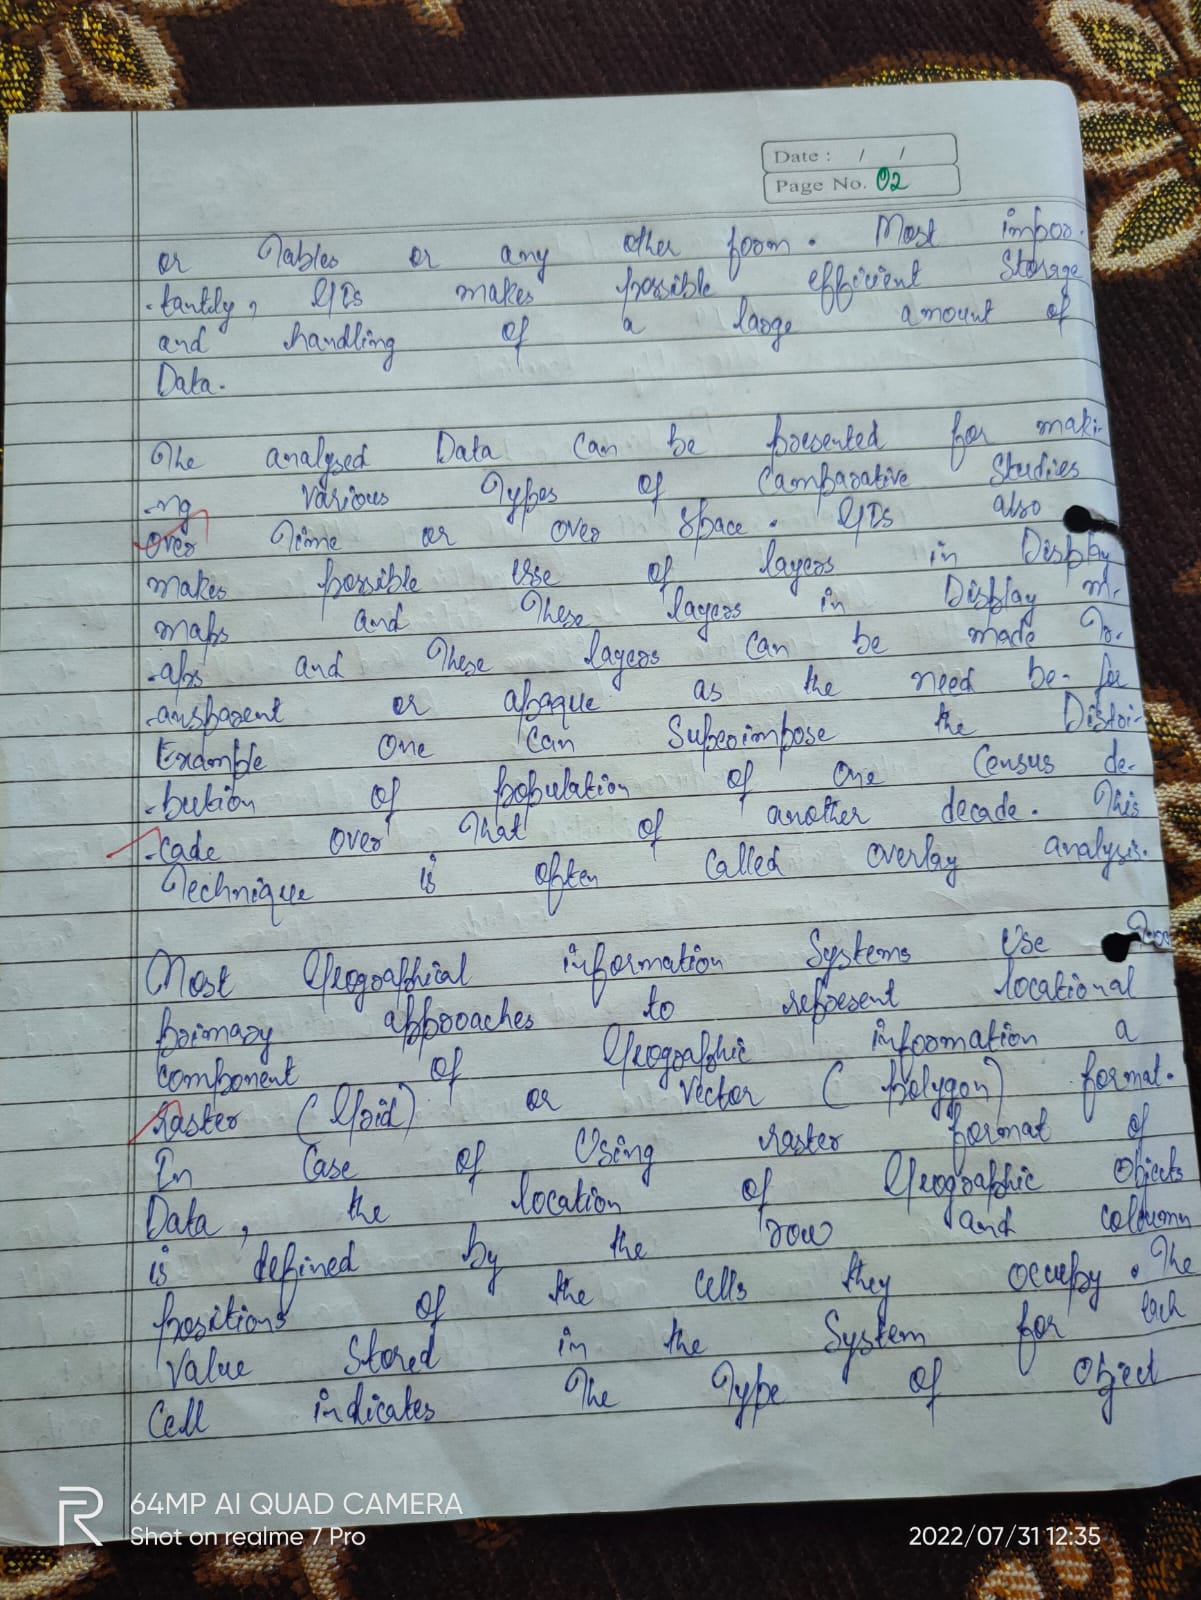 Date : / /
Page No. 02
or Tables or any other form. Most impor-
-tantly, GIS makes possible efficient Storage
and handling of a large amount of
Data.
The analysed Data Can be presented for maki-
-ng various Types of Camparative Studies
over Time or over space. GIS also
makes possible Use of layers in Display
maps and These layers in Display m-
-aps and These layers Can be made Tr-
-ansparent or apaque as the need be- for
Example One Can Superimpose the Distri-
-bution of population of One Census de-
-cade over That of another decade. This
Technique is often Called overlay analysis.
Most Geographical information Systems Use Two
primary approaches to represent locational
component of Geographic information a
raster (Grid) or Vector (polygon) format.
In Case of Using raster format of
Data, the location of Geographic Objects
is defined by the row and coloumn
positions of the Cells they occupy. The
Value Stored in the System for each
Cell indicates The Type of Object
64MP AI QUAD CAMERA
Shot on realme 7 Pro
2022/07/31 12:35